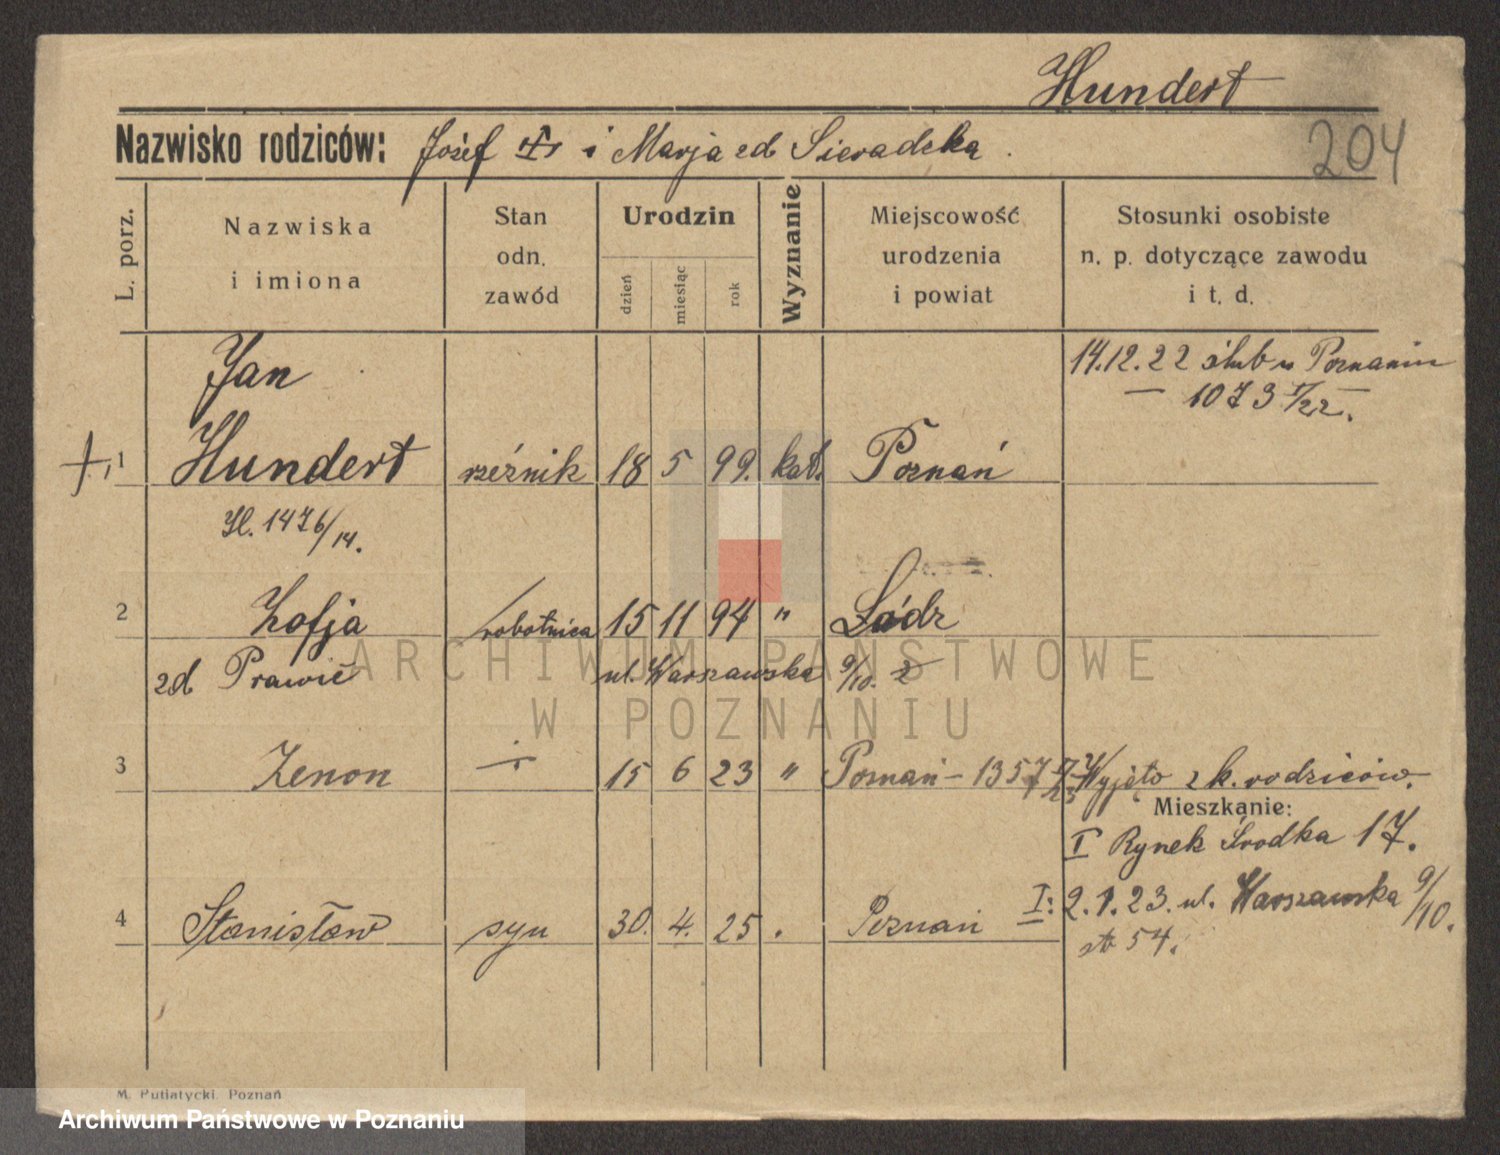 Hundert
204
Nazwisko rodziców: Józef i Marja zd Sieradzka.
L. porz.
Nazwiska i imiona
Stan odn. zawód
Urodzin
dzień
miesiąc
rok
Wyznanie
Miejscowość urodzenia i powiat
Stosunki osobiste n. p. dotyczące zawodu i t. d.
Jan
14.12.22 ślub w Poznaniu
— 1073 I/22. —
1 Hundert rzeźnik 18 5 99. kat. Poznań
Jl. 1476/14.
2 Zofja robotnica 15 11 94 " Łódz
zd Prawic ul. Warszawska 9/10.
3 Zenon 15 6 23 " Poznań - 1357 Wyjęto z k. rodziców.
Mieszkanie:
I Rynek Środka 17.
4 Stanisław syn 30. 4. 25. Poznań I: 2.1.23. ul. Warszawska 9/10.
54.
M. Putiatycki, Poznań
ARCHIWUM PAŃSTWOWE
W POZNANIU
Archiwum Państwowe w Poznaniu